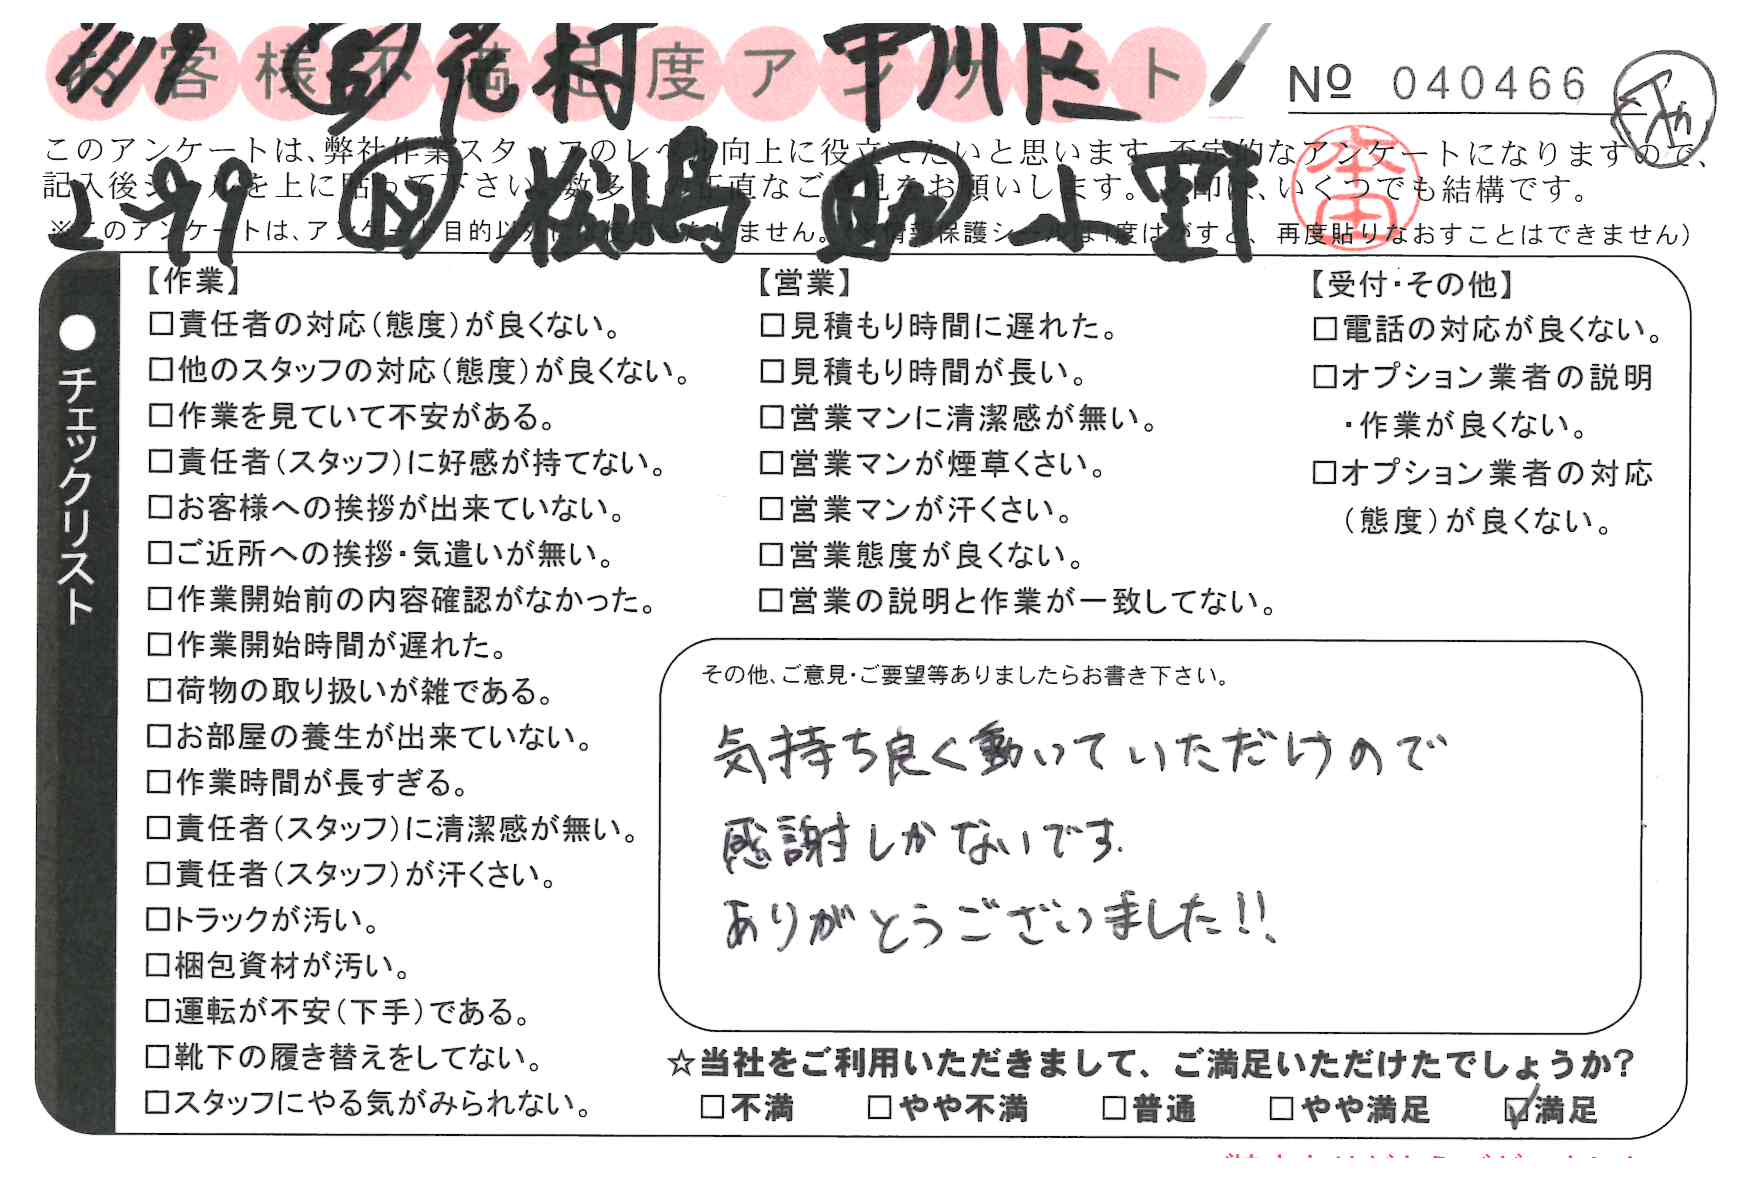 お客様不満足度アンケート
7/19 花村 中川区
№ 040466
このアンケートは、弊社作業スタッフのレベル向上に役立てたいと思います。不定的なアンケートになりますので、
記入後シールを上に貼って下さい。数多くの正直なご意見をお願いします。 印は、いくつでも結構です。
2-99 N 松嶋 小野
本田
【作業】
□責任者の対応(態度)が良くない。
□他のスタッフの対応(態度)が良くない。
□作業を見ていて不安がある。
□責任者(スタッフ)に好感が持てない。
□お客様への挨拶が出来ていない。
□ご近所への挨拶・気遣いが無い。
□作業開始前の内容確認がなかった。
□作業開始時間が遅れた。
□荷物の取り扱いが雑である。
□お部屋の養生が出来ていない。
□作業時間が長すぎる。
□責任者(スタッフ)に清潔感が無い。
□責任者(スタッフ)が汗くさい。
□トラックが汚い。
□梱包資材が汚い。
□運転が不安(下手)である。
□靴下の履き替えをしてない。
□スタッフにやる気がみられない。
【営業】
□見積もり時間に遅れた。
□見積もり時間が長い。
□営業マンに清潔感が無い。
□営業マンが煙草くさい。
□営業マンが汗くさい。
□営業態度が良くない。
□営業の説明と作業が一致してない。
【受付・その他】
□電話の対応が良くない。
□オプション業者の説明
・作業が良くない。
□オプション業者の対応
(態度)が良くない。
●チェックリスト
その他、ご意見・ご要望等ありましたらお書き下さい。
気持ち良く動いていただけので
感謝しかないです.
ありがとうございました!!
☆当社をご利用いただきまして、ご満足いただけたでしょうか?
□不満 □やや不満 □普通 □やや満足 ☑満足